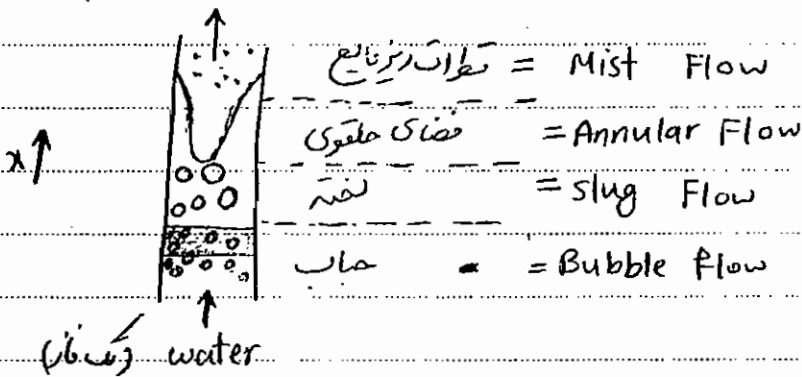 قطرات ریز مایع = Mist Flow
فضای حلقوی = Annular Flow
لخته = slug Flow
حباب = Bubble flow
x
(تک فاز) water